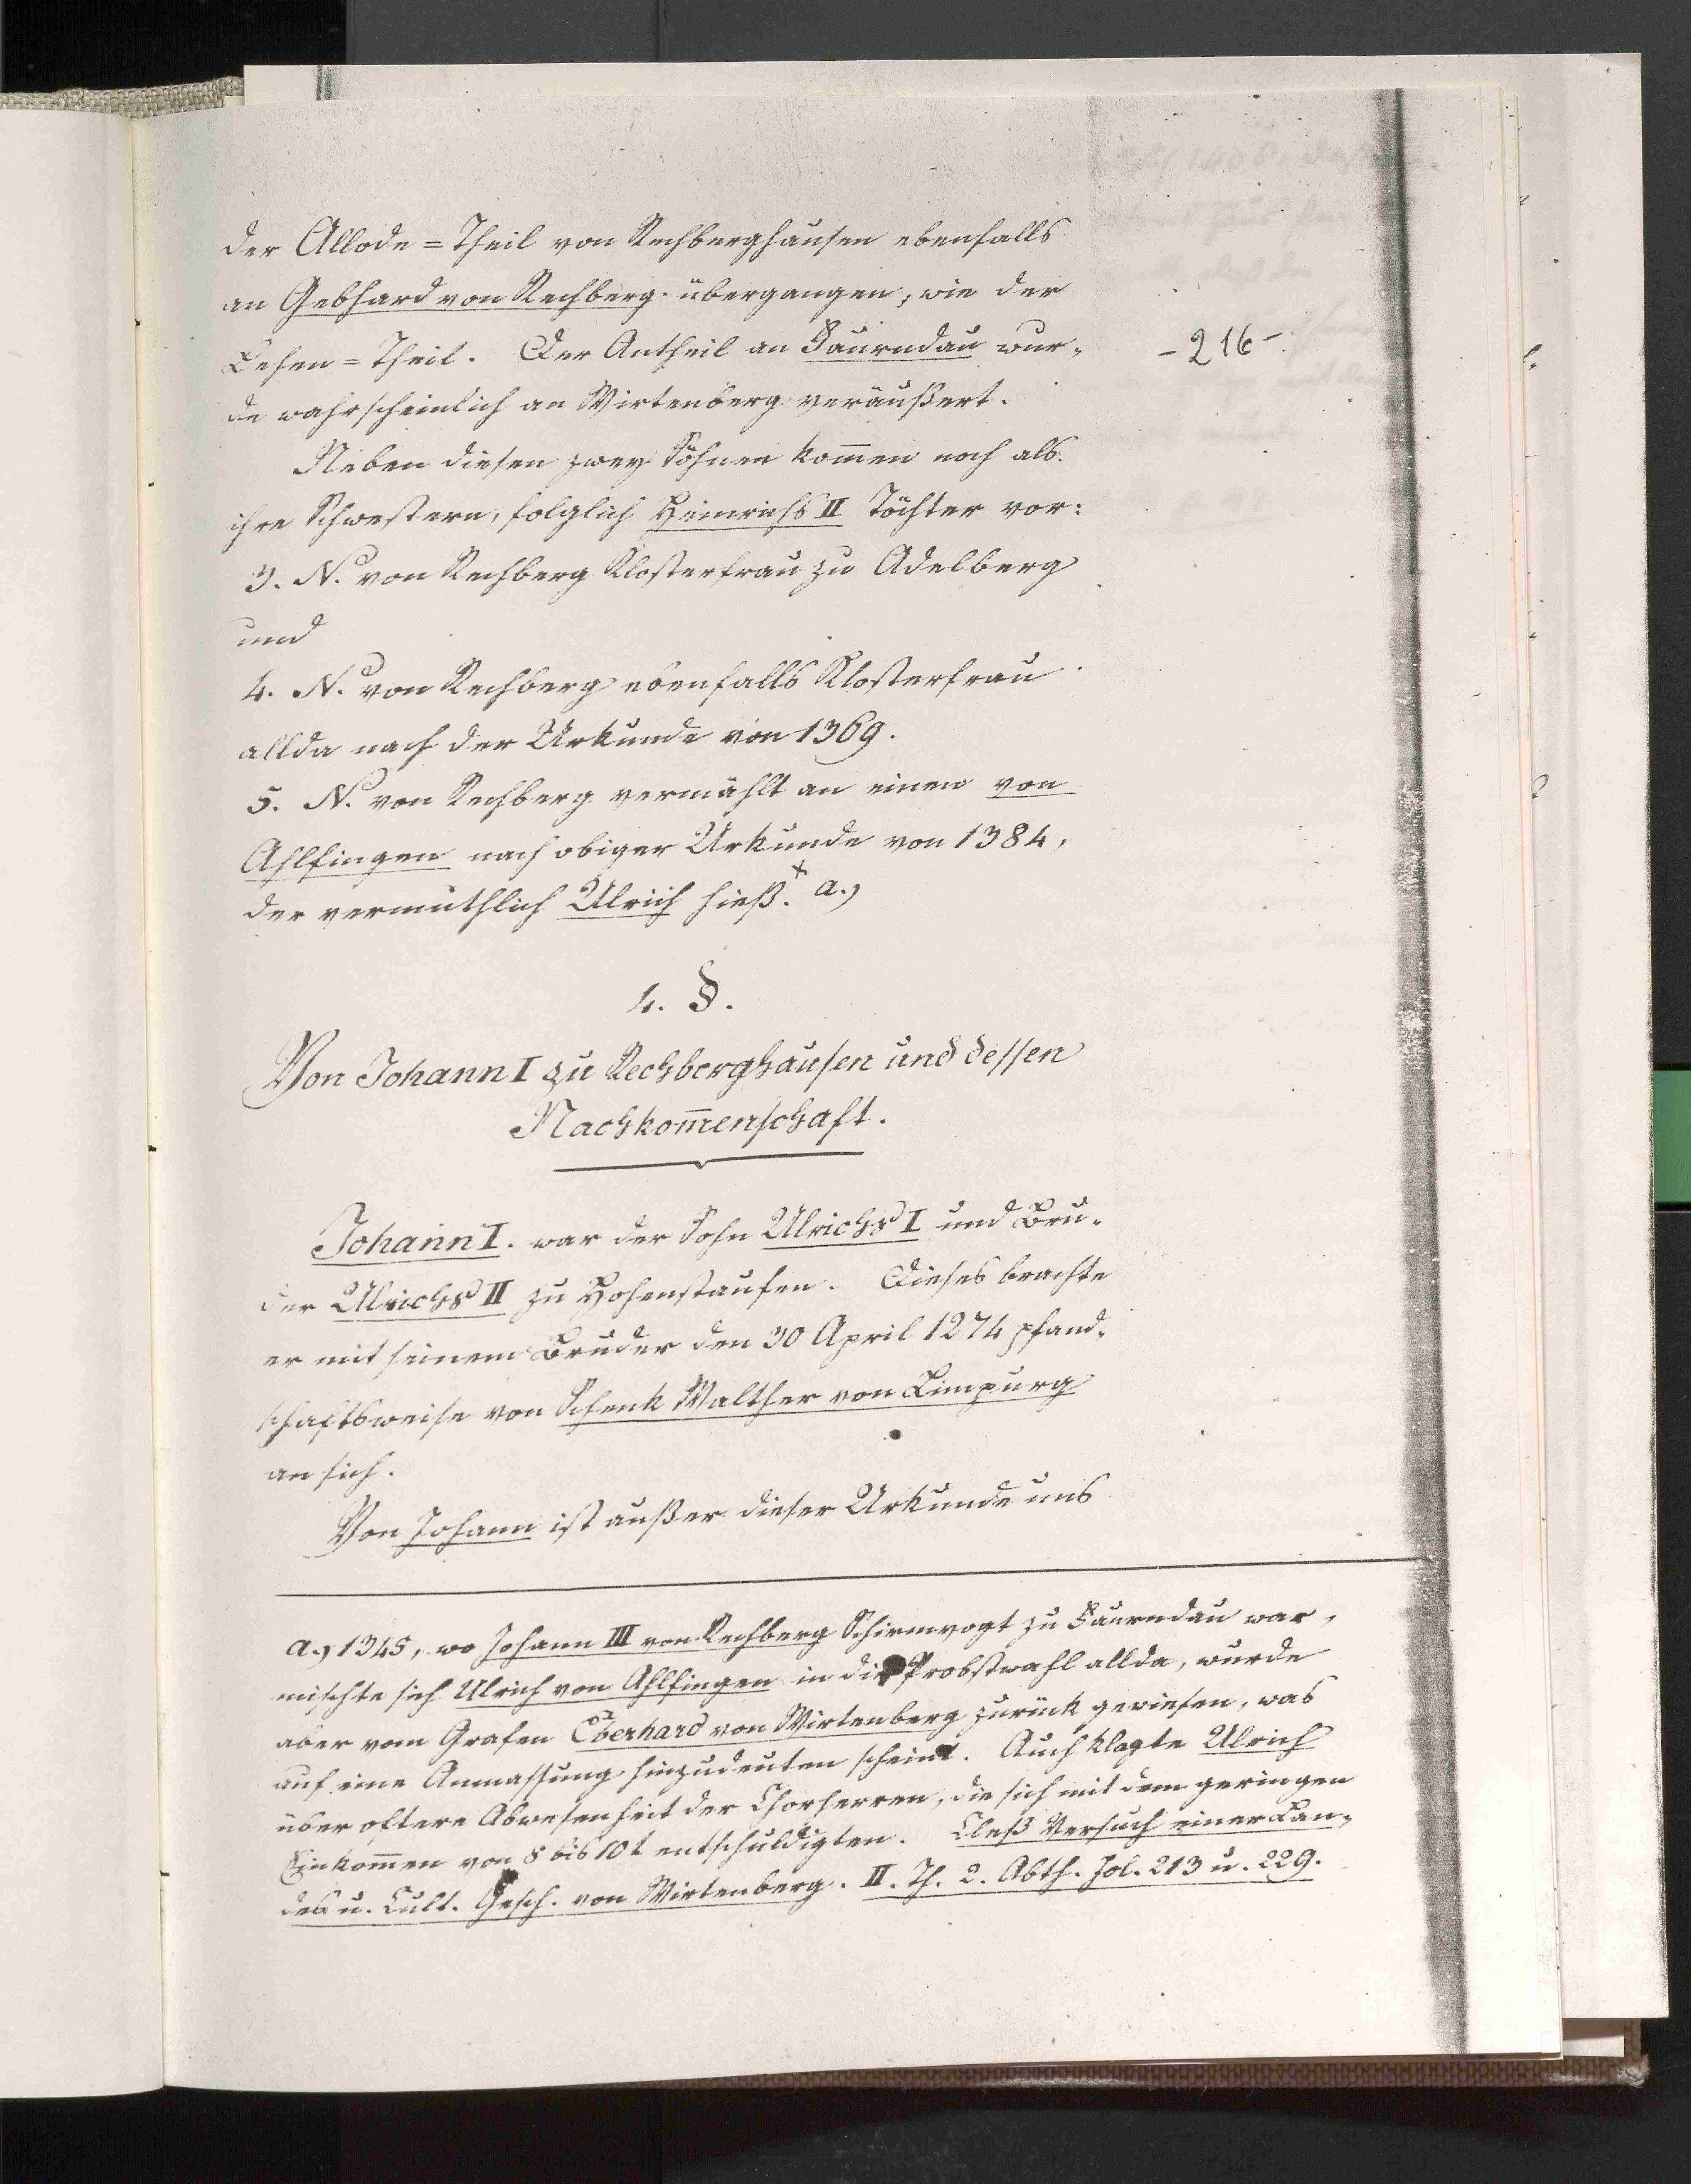 der Allode=Theil von Rechberghausen ebenfalls
an Gebhard von Rechberg übergangen, wie der
Lehen=Theil. Der Antheil an Faurndau wur-
-216-
de wahrscheinlich an Wirtenberg veräußert.
Neben diesen zwey Söhnen kom̅en noch als
ihre Schwestern, folglich Heinrichs II Töchter vor:
3. N. von Rechberg Klosterfrau zu Adelberg
und
4. N. von Rechberg ebenfalls Klosterfrau
allda nach der Urkunde von 1369.
5. N. von Rechberg vermählt an einen von
Ahlfingen nach obiger Urkunde von 1384,
der vermuthlich Ulrich hieß. + a.)
4. §.
Von Johann I zu Rechberghausen und dessen
Nachkom̅enschaft.
Johann I. war der Sohn Ulrichs I und Bru-
der Ulrichs II zu Hohenstaufen. Dieses brachte
er mit seinem Bruder den 30 April 1274 pfand-
schaftsweise von Schenk Walther von Limpurg
an sich.
Von Johann ist außer dieser Urkunde uns
a.) 1345, wo Johann III von Rechberg Schirmvogt zu Faurndau war,
mischte sich Ulrich von Ahlfingen in die Probstwahl allda, wurde
aber vom Grafen Eberhard von Wirtenberg zurück gewiesen, was
auf eine Anmassung hinzudeuten scheint. Auch klagte Ulrich
über oftere Abwesenheit der Chorherren, die sich mit dem geringen
Einkom̅en von 8 bis 10 t entschuldigten. Cleß Versuch einer Lan-
des u. Cult. Gesch. von Wirtenberg. II. Th. 2. Abth. Fol. 213 u. 229.